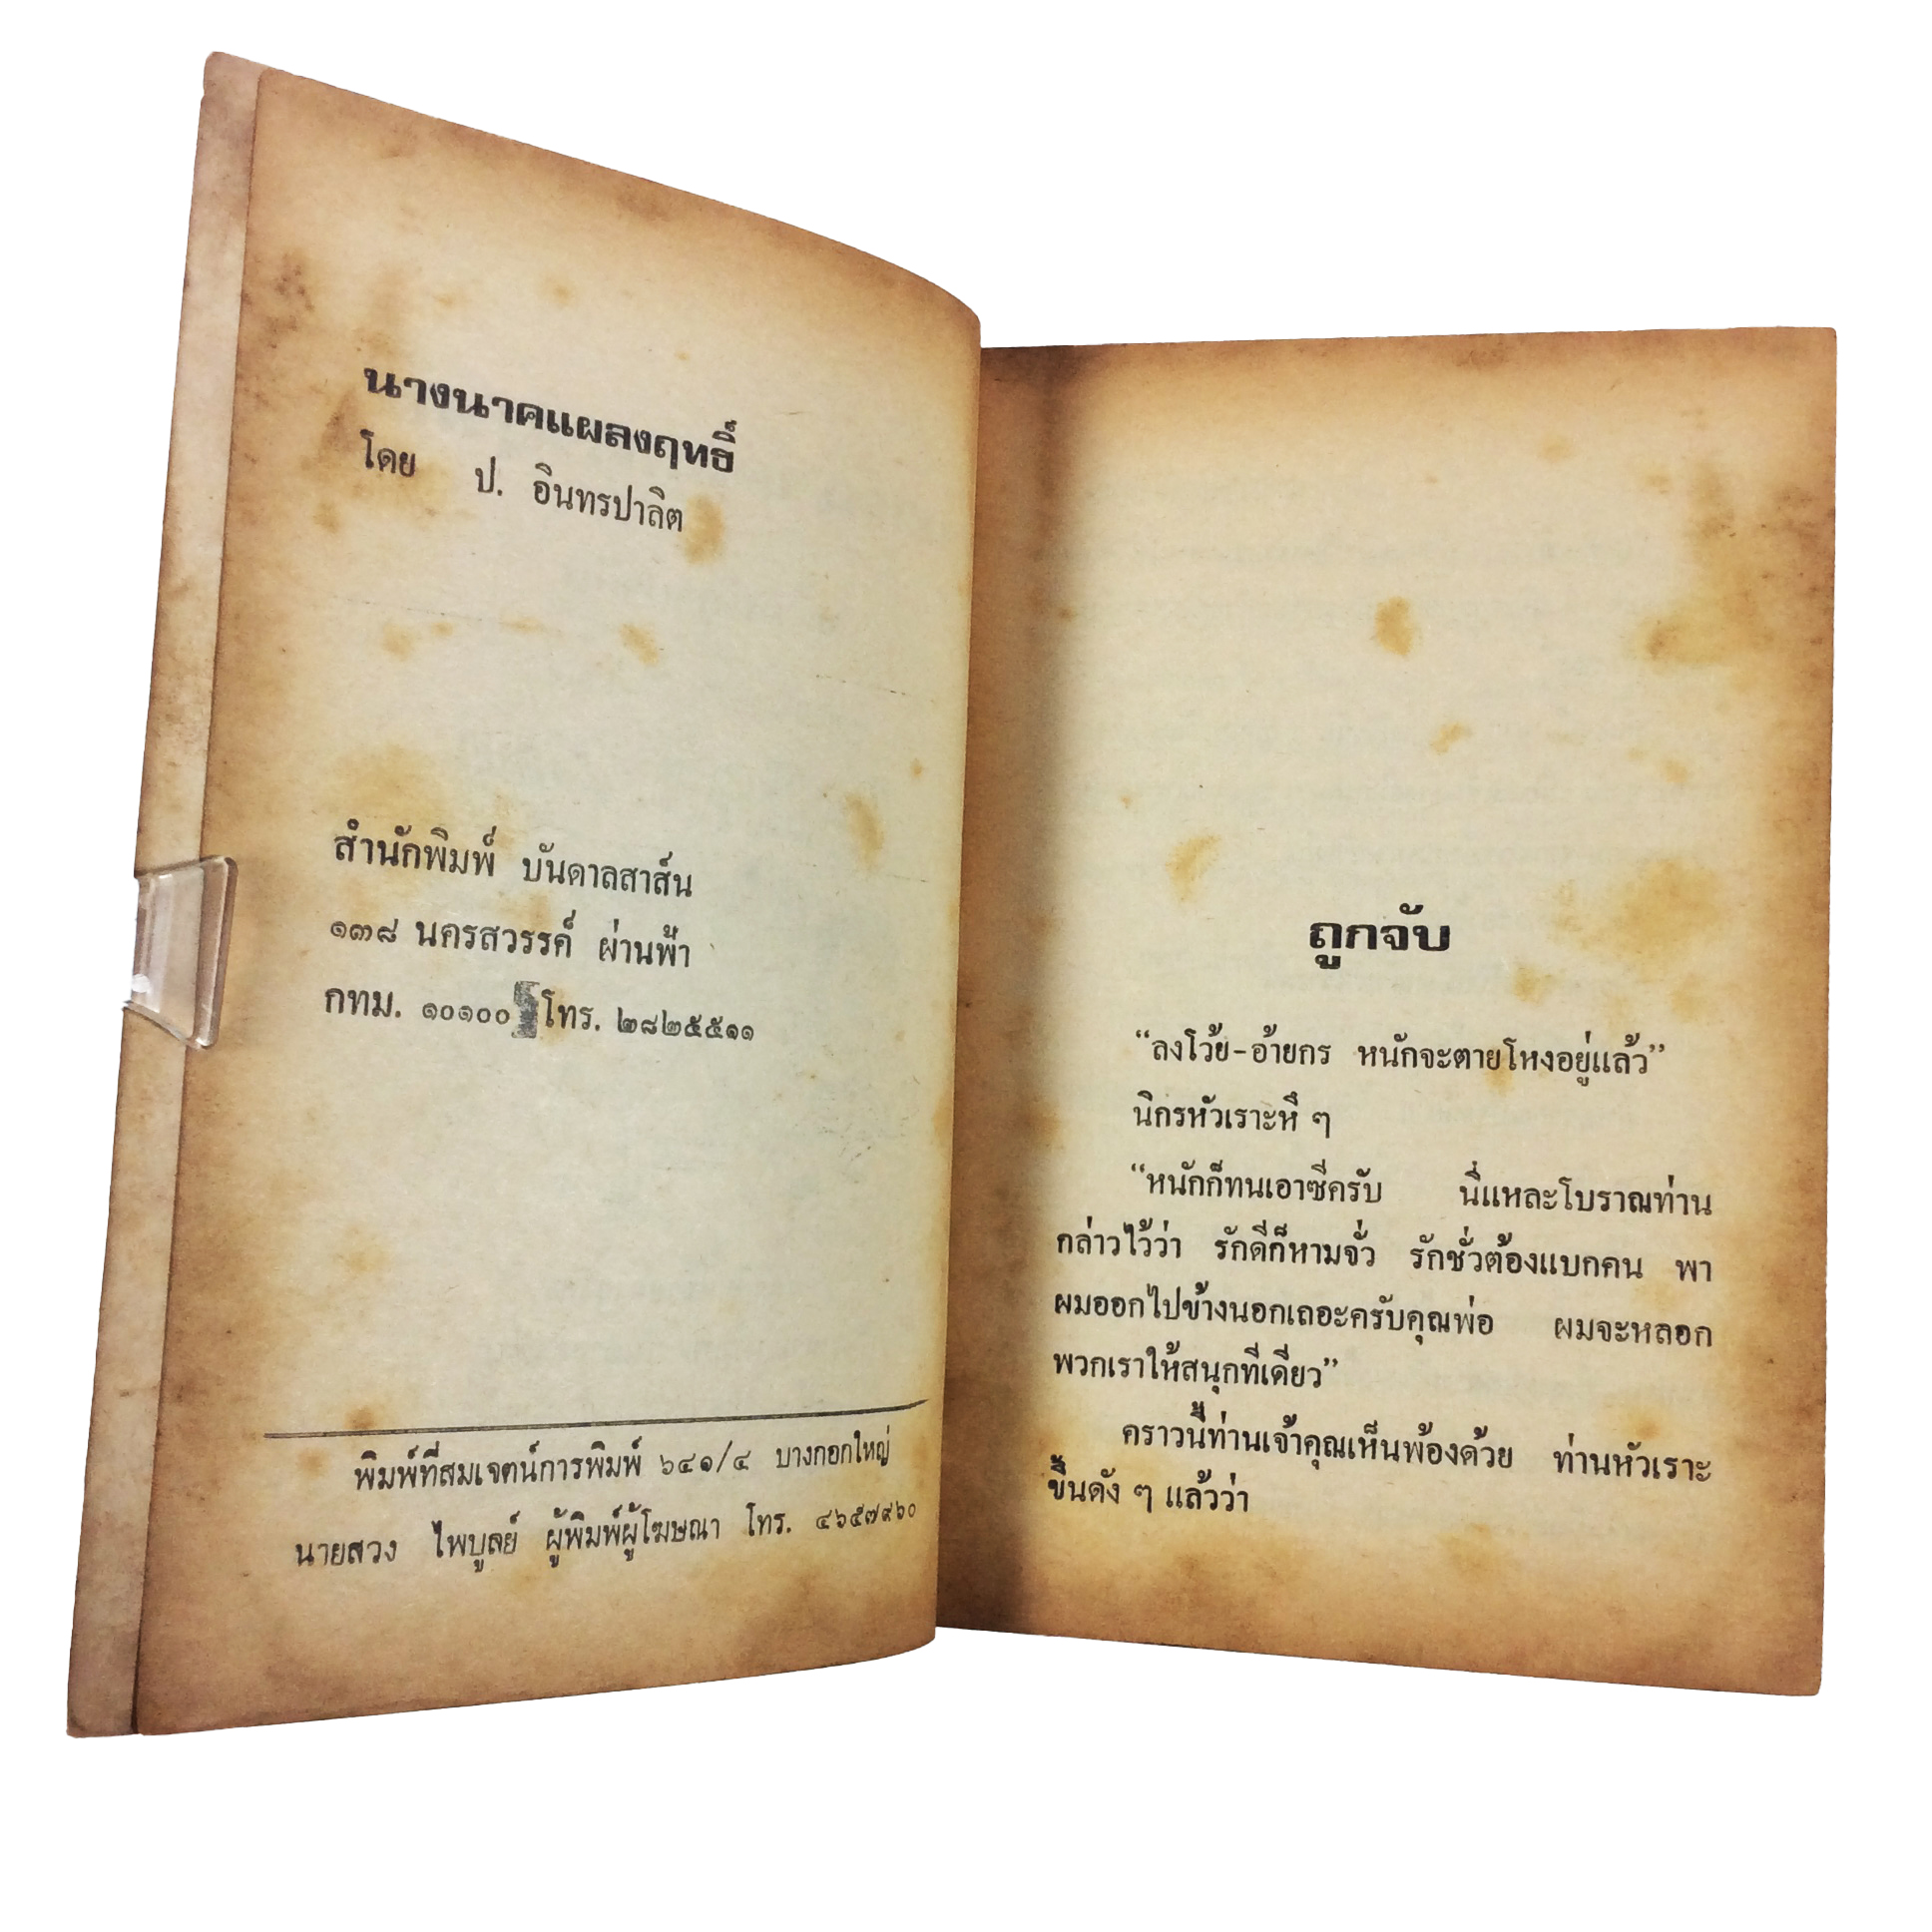 นางนาคแผลงฤทธิ์
โดย ป. อินทรปาลิต
สำนักพิมพ์ บันดาลสาส์น
๑๓๘ นครสวรรค์ ผ่านฟ้า
กทม. ๑๐๑๐๐ โทร. ๒๘๒๕๕๑๑
พิมพ์ที่สมเจตน์การพิมพ์ ๖๔๑/๔ บางกอกใหญ่
นายสวง ไพบูลย์ ผู้พิมพ์ผู้โฆษณา โทร. ๔๖๕๗๙๖๐
ถูกจับ
“ลงโว้ย-อ้ายกร หนักจะตายโหงอยู่แล้ว”
นิกรหัวเราะหึ ๆ
“หนักก็ทนเอาซีครับ นี่แหละโบราณท่าน
กล่าวไว้ว่า รักดีก็หามจั่ว รักชั่วต้องแบกคน พา
ผมออกไปข้างนอกเถอะครับคุณพ่อ ผมจะหลอก
พวกเราให้สนุกทีเดียว”
คราวนี้ท่านเจ้าคุณเห็นพ้องด้วย ท่านหัวเราะ
ขึ้นดัง ๆ แล้วว่า